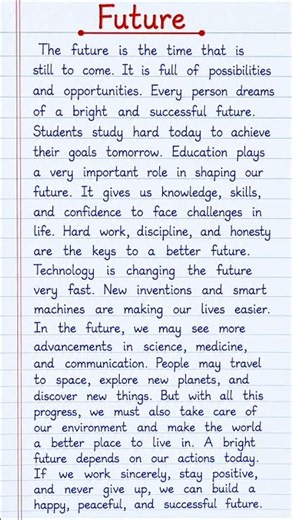 Future
The future is the time that is
still to come. It is full of possibilities
and opportunities. Every person dreams
of a bright and successful future.
Students study hard today to achieve
their goals tomorrow. Education plays
a very important role in shaping our
future. It gives us knowledge, skills,
and confidence to face challenges in
life. Hard work, discipline, and honesty
are the keys to a better future.
Technology is changing the future
very fast. New inventions and smart
machines are making our lives easier.
In the future, we may see more
advancements in science, medicine,
and communication. People may travel
to space, explore new planets, and
discover new things. But with all this
progress, we must also take care of
our environment and make the world
a better place to live in. A bright
future depends on our actions today.
If we work sincerely, stay positive,
and never give up, we can build a
happy, peaceful, and successful future.